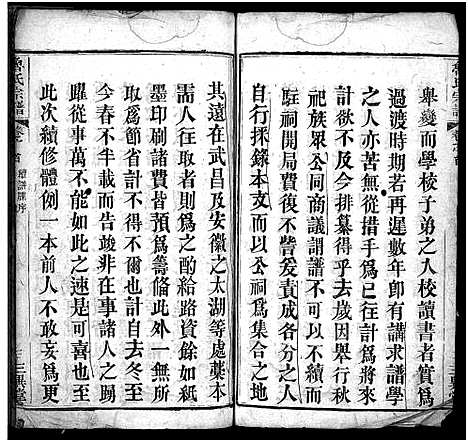 舉變而學校子弟之入校讀書者實爲
過渡時期若再遲數年卽有講求譜學
之人亦苦無從措手爲已往計爲將來
計欲不及今排纂得乎去歲因舉行秋
祀族眾公同商議謂譜不可以不續而
駐祠開飯後不訾爰責成各分各房各
自行採錄本末以公祠爲集合之地
其遠在武昌及安徽之太湖等處藁本
需人往取者則爲之酌給路資餘如紙
墨印刷諸費皆預爲籌備此外一無所
取爲節省計不得不爾也計自去冬至
今春不半載而告竣非在事諸人之踴
躍從事萬不能如此之速是可喜也至
此次續修體例一本前人不敢妄爲更
魯氏宗譜
卷之首
續譜牒序
三異堂